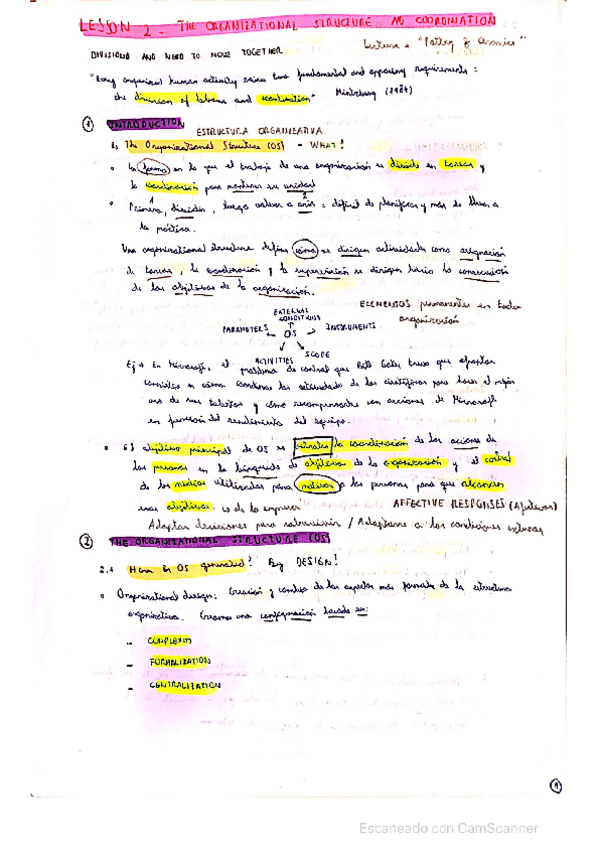 LESSON 2 - THE ORGANIZATIONAL STRUCTURE AND COORDINATION
Lectura → "Pottery of Ceramics"
DIVISIONS AND NEED TO MOVE TOGETHER
"Every organized human activity raises two fundamental and opposing requirements:
the division of labour and coordination" Mintzberg (1984)
① INTRODUCTION
ESTRUCTURA ORGANIZATIVA
The Organizational Structure (OS) - WHAT?
• La forma en la que el trabajo de una organización es divide en tareas y
la coordinación para mantener su unidad
• Primero, dividir, luego volver a unir: difícil de planificar y más de llevar a
la práctica.
Una organizational structure define cómo se dirigen actividades como asignación
de tareas, la coordinación y la supervisión se dirigen hacia la consecución
de los objetivos de la organización.
ELEMENTOS permanentes en toda
organización
EXTERNAL
CONDITIONS
PARAMETERS ← OS → INSTRUMENTS
ACTIVITIES SCOPE
Ej → En Microsoft, el problema de control que Bill Gates tuvo que afrontar
consistía en cómo coordinar las actividades de los científicos para hacer el mejor
uso de sus talentos y cómo recompensarles con acciones de Microsoft
en función del rendimiento del equipo.
• El objetivo principal de OS es la coordinación de las acciones de
las personas en la búsqueda de objetivos de la organización y el control
de los medios utilizados para motivar a las personas para que alcancen
esos objetivos de la empresa
AFFECTIVE RESPONSES
Adaptar decisiones para sobrevivir / Adaptarse a las condiciones externas
② THE ORGANIZATIONAL STRUCTURE (OS)
2.1 How is OS generated? By DESIGN!
• Organizational design: Creación y cambio de los aspectos más formales de la estructura
organizativa. Creamos una configuración basada en:
- COMPLEXITY
- FORMALIZATION
- CENTRALIZATION
①
Escaneado con CamScanner